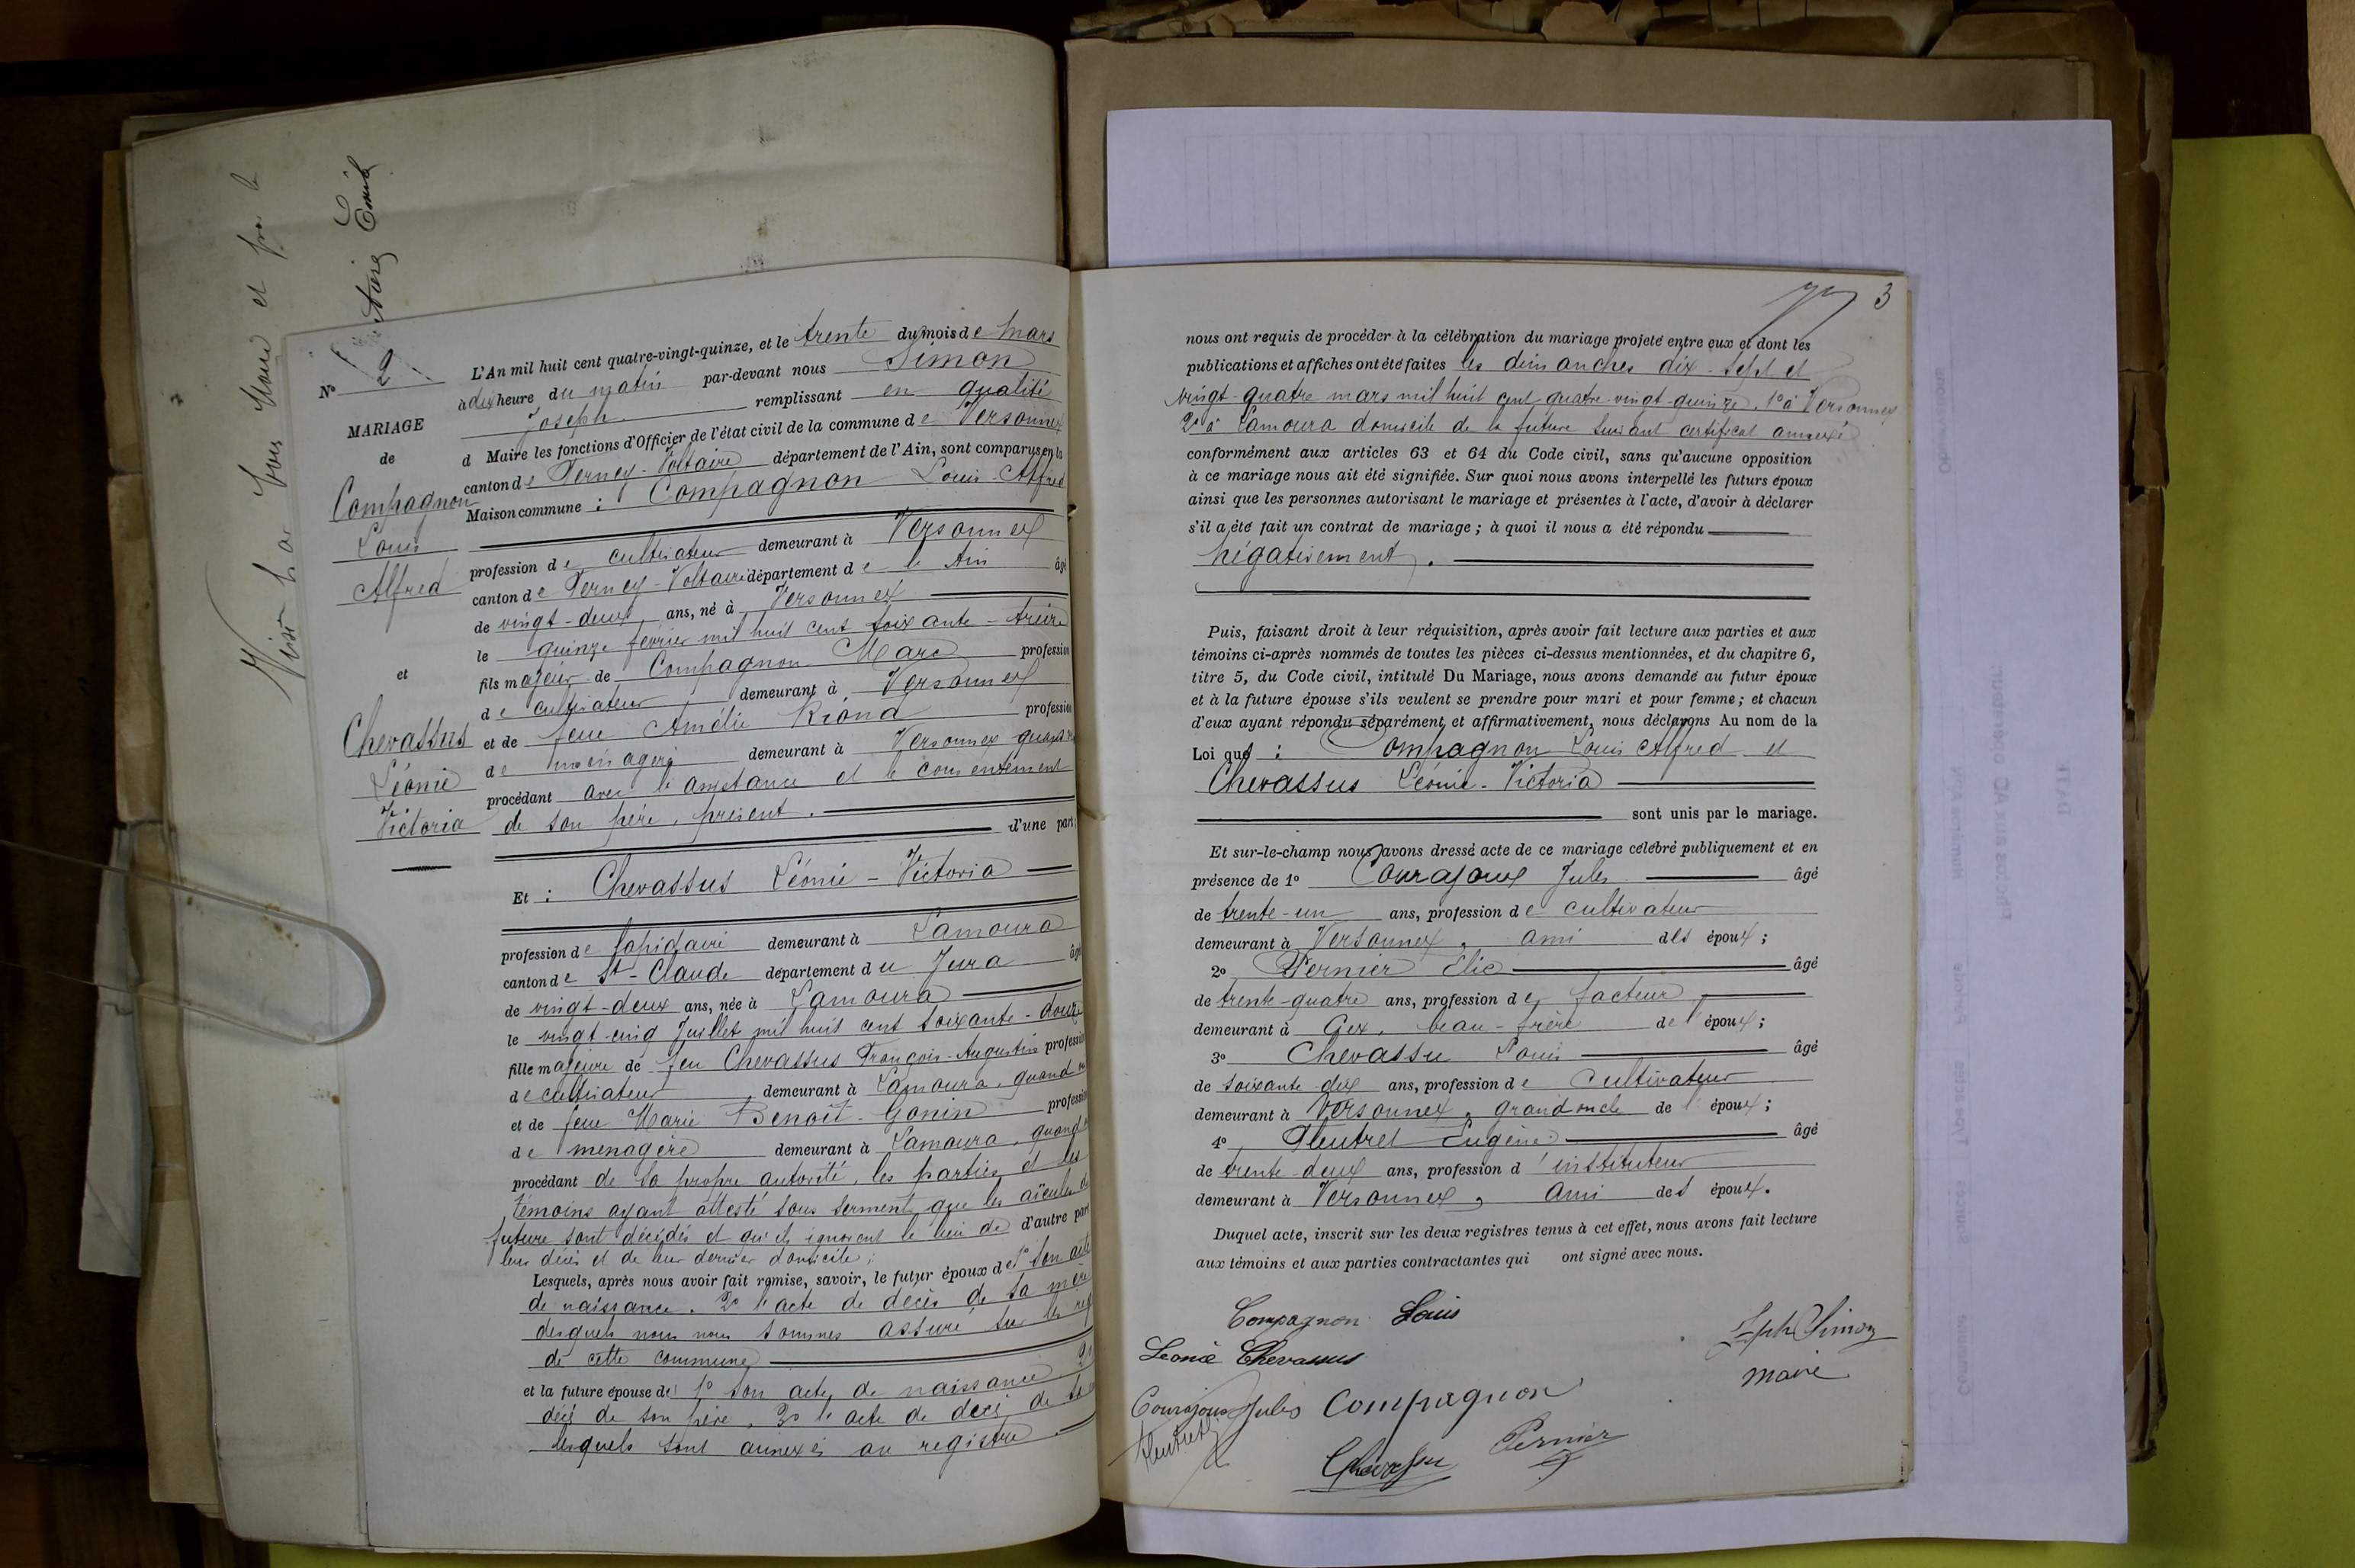 N° 2
MARIAGE
de
Compagnon
Louis
Alfred
et
Chevassus
Léonie
Victoria
L'An mil huit cent quatre-vingt-quinze, et le trente du mois de Mars
à dix heure du matin par-devant nous Simon
Joseph remplissant en qualité
d Maire les fonctions d'Officier de l'état civil de la commune de Versonnex
canton de Ferney-Voltaire département de l'Ain, sont comparus en la
Maison commune : Compagnon Louis-Alfred
profession de cultivateur demeurant à Versonnex
canton de Ferney-Voltaire département de l'Ain âgé
de vingt-deux ans, né à Versonnex
le quinze février mil huit cent soixante-treize
fils majeur de Compagnon Marc profession
de cultivateur demeurant à Versonnex
et de feue Amélie profession
de ménagère demeurant à Versonnex quand
procédant avec l'assistance et le consentement
de son père, présent. d'une part;
Et : Chevassus Léonie-Victoria
profession de lapidaire demeurant à Lamoura
canton de St-Claude département du Jura âgé
de vingt-deux ans, née à Lamoura
le vingt-cinq Juillet mil huit cent soixante-douze
fille majeure de feu Chevassus François-Augustin profession
de cultivateur demeurant à Lamoura, quand
et de feue Marie Benoît-Gonin profession
de menagère demeurant à Lamoura, quand
procédant de sa propre autorité, les parties et les
témoins ayant attesté sous serment que les aïeuls de
future sont décédés et qu'ils ignorent le lieu de d'autre part
leur décès et de leur dernier domicile;
Lesquels, après nous avoir fait remise, savoir, le futur époux de 1° son acte
de naissance. 2° l'acte de décès de sa mère
desquels nous nous sommes assuré sur les reg
de cette commune
et la future épouse de 1° son acte de naissance 2°
décè de son père, 3° l'acte de décè de sa
lesquels sont annexés au registre
3
nous ont requis de procéder à la célébration du mariage projeté entre eux et dont les
publications et affiches ont été faites les dimanches dix-sept et
vingt-quatre mars mil huit cent quatre-vingt-quinze. 1° à Versonnex
2° à Lamoura domicile de la future suivant certificat annexé
conformément aux articles 63 et 64 du Code civil, sans qu'aucune opposition
à ce mariage nous ait été signifiée. Sur quoi nous avons interpellé les futurs époux
ainsi que les personnes autorisant le mariage et présentes à l'acte, d'avoir à déclarer
s'il a été fait un contrat de mariage; à quoi il nous a été répondu
négativement.
Puis, faisant droit à leur réquisition, après avoir fait lecture aux parties et aux
témoins ci-après nommés de toutes les pièces ci-dessus mentionnées, et du chapitre 6,
titre 5, du Code civil, intitulé Du Mariage, nous avons demandé au futur époux
et à la future épouse s'ils veulent se prendre pour mari et pour femme; et chacun
d'eux ayant répondu séparément et affirmativement, nous déclarons Au nom de la
Loi que : Compagnon Louis Alfred et
Chevassus Léonie-Victoria
sont unis par le mariage.
Et sur-le-champ nous avons dressé acte de ce mariage célébré publiquement et en
présence de 1° Courajoux Jules âgé
de trente-un ans, profession de cultivateur
demeurant à Versonnex, ami des époux;
2° Pernier Elie âgé
de trente-quatre ans, profession de facteur
demeurant à Gex, beau-frère de l'époux;
3° Chevassu Louis âgé
de soixante-dix ans, profession de Cultivateur
demeurant à Versonnex, grand oncle de l'époux;
4° Fleutret Eugène âgé
de trente-deux ans, profession d'instituteur
demeurant à Versonnex, ami des époux.
Duquel acte, inscrit sur les deux registres tenus à cet effet, nous avons fait lecture
aux témoins et aux parties contractantes qui ont signé avec nous.
Compagnon Louis
Jph Simon
Leonie Chevassus
maire
Courajoux Jules Compagnon
Fleutret
Pernier
Chevassu